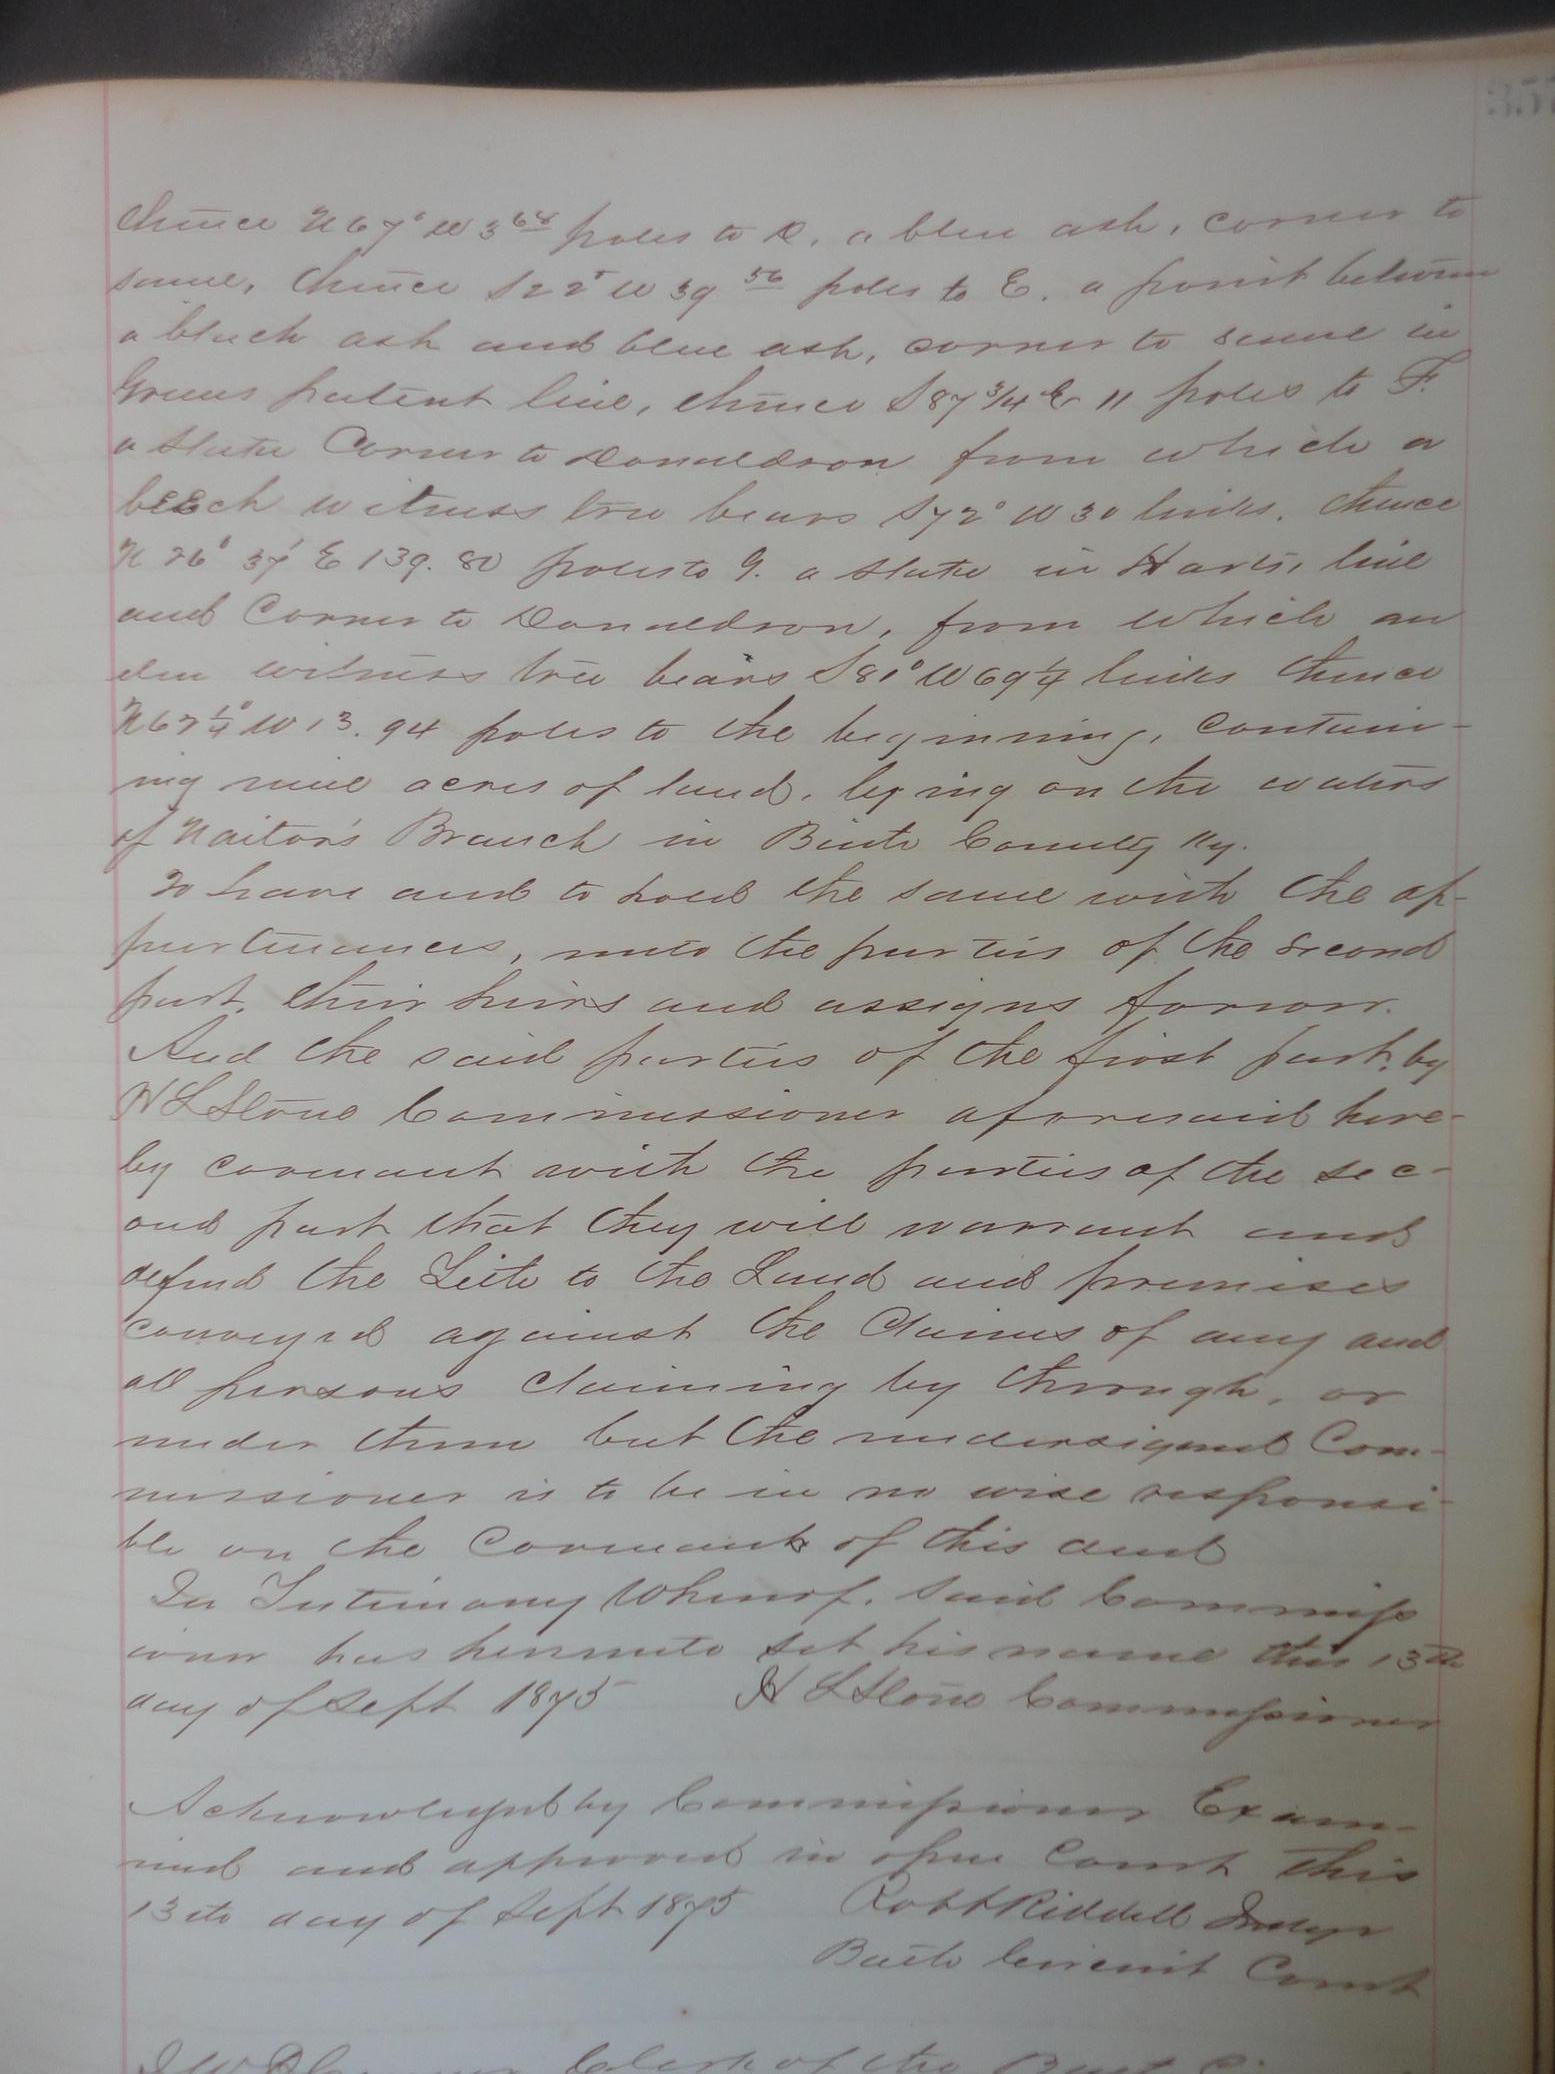 thence N 67° W 3 68 poles to D. a blue ash, corner to
same, thence S 22° W 39 56 poles to E. a point between
a black ash and blue ash, corner to same in
Greens patent line, thence S 87 3/4 E 11 poles to F.
a stake Corner to Donaldson from which a
beech witness tree bears S 72° W 30 links. thence
N 26° 37' E 139.80 poles to G. a stake in Harts, line
and Corner to Donaldson, from which an
elm witness tree bears S 81° W 69 1/4 links thence
N 67 1/4° W 13.94 poles to the beginning, contain-
ing nine acres of land, lying on the waters
of Naitor's Branch in Bath County Ky.
To have and to hold the same with the ap-
purtenances, unto the parties of the second
part, their heirs and assigns forever.
And the said parties of the first part, by
H L Stone Commissioner aforesaid here-
by covenant with the parties of the sec-
ond part that they will warrant and
defend the Title to the Land and premises
conveyed against the Claims of any and
all persons claiming by through, or
under them but the undersigned Com-
missioner is to be in no wise responsi-
ble on the Covenants of this deed
In Testimony Whereof, said Commiss
ioner has hereunto set his name this 13th
day of Sept 1875 H L Stone Commissioner
Acknowledged by Commissioner Exam-
ined and approved in open Court this
13th day of Sept 1875 Robt Riddell Judge
Bath Circuit Court
Clerk of the Bath